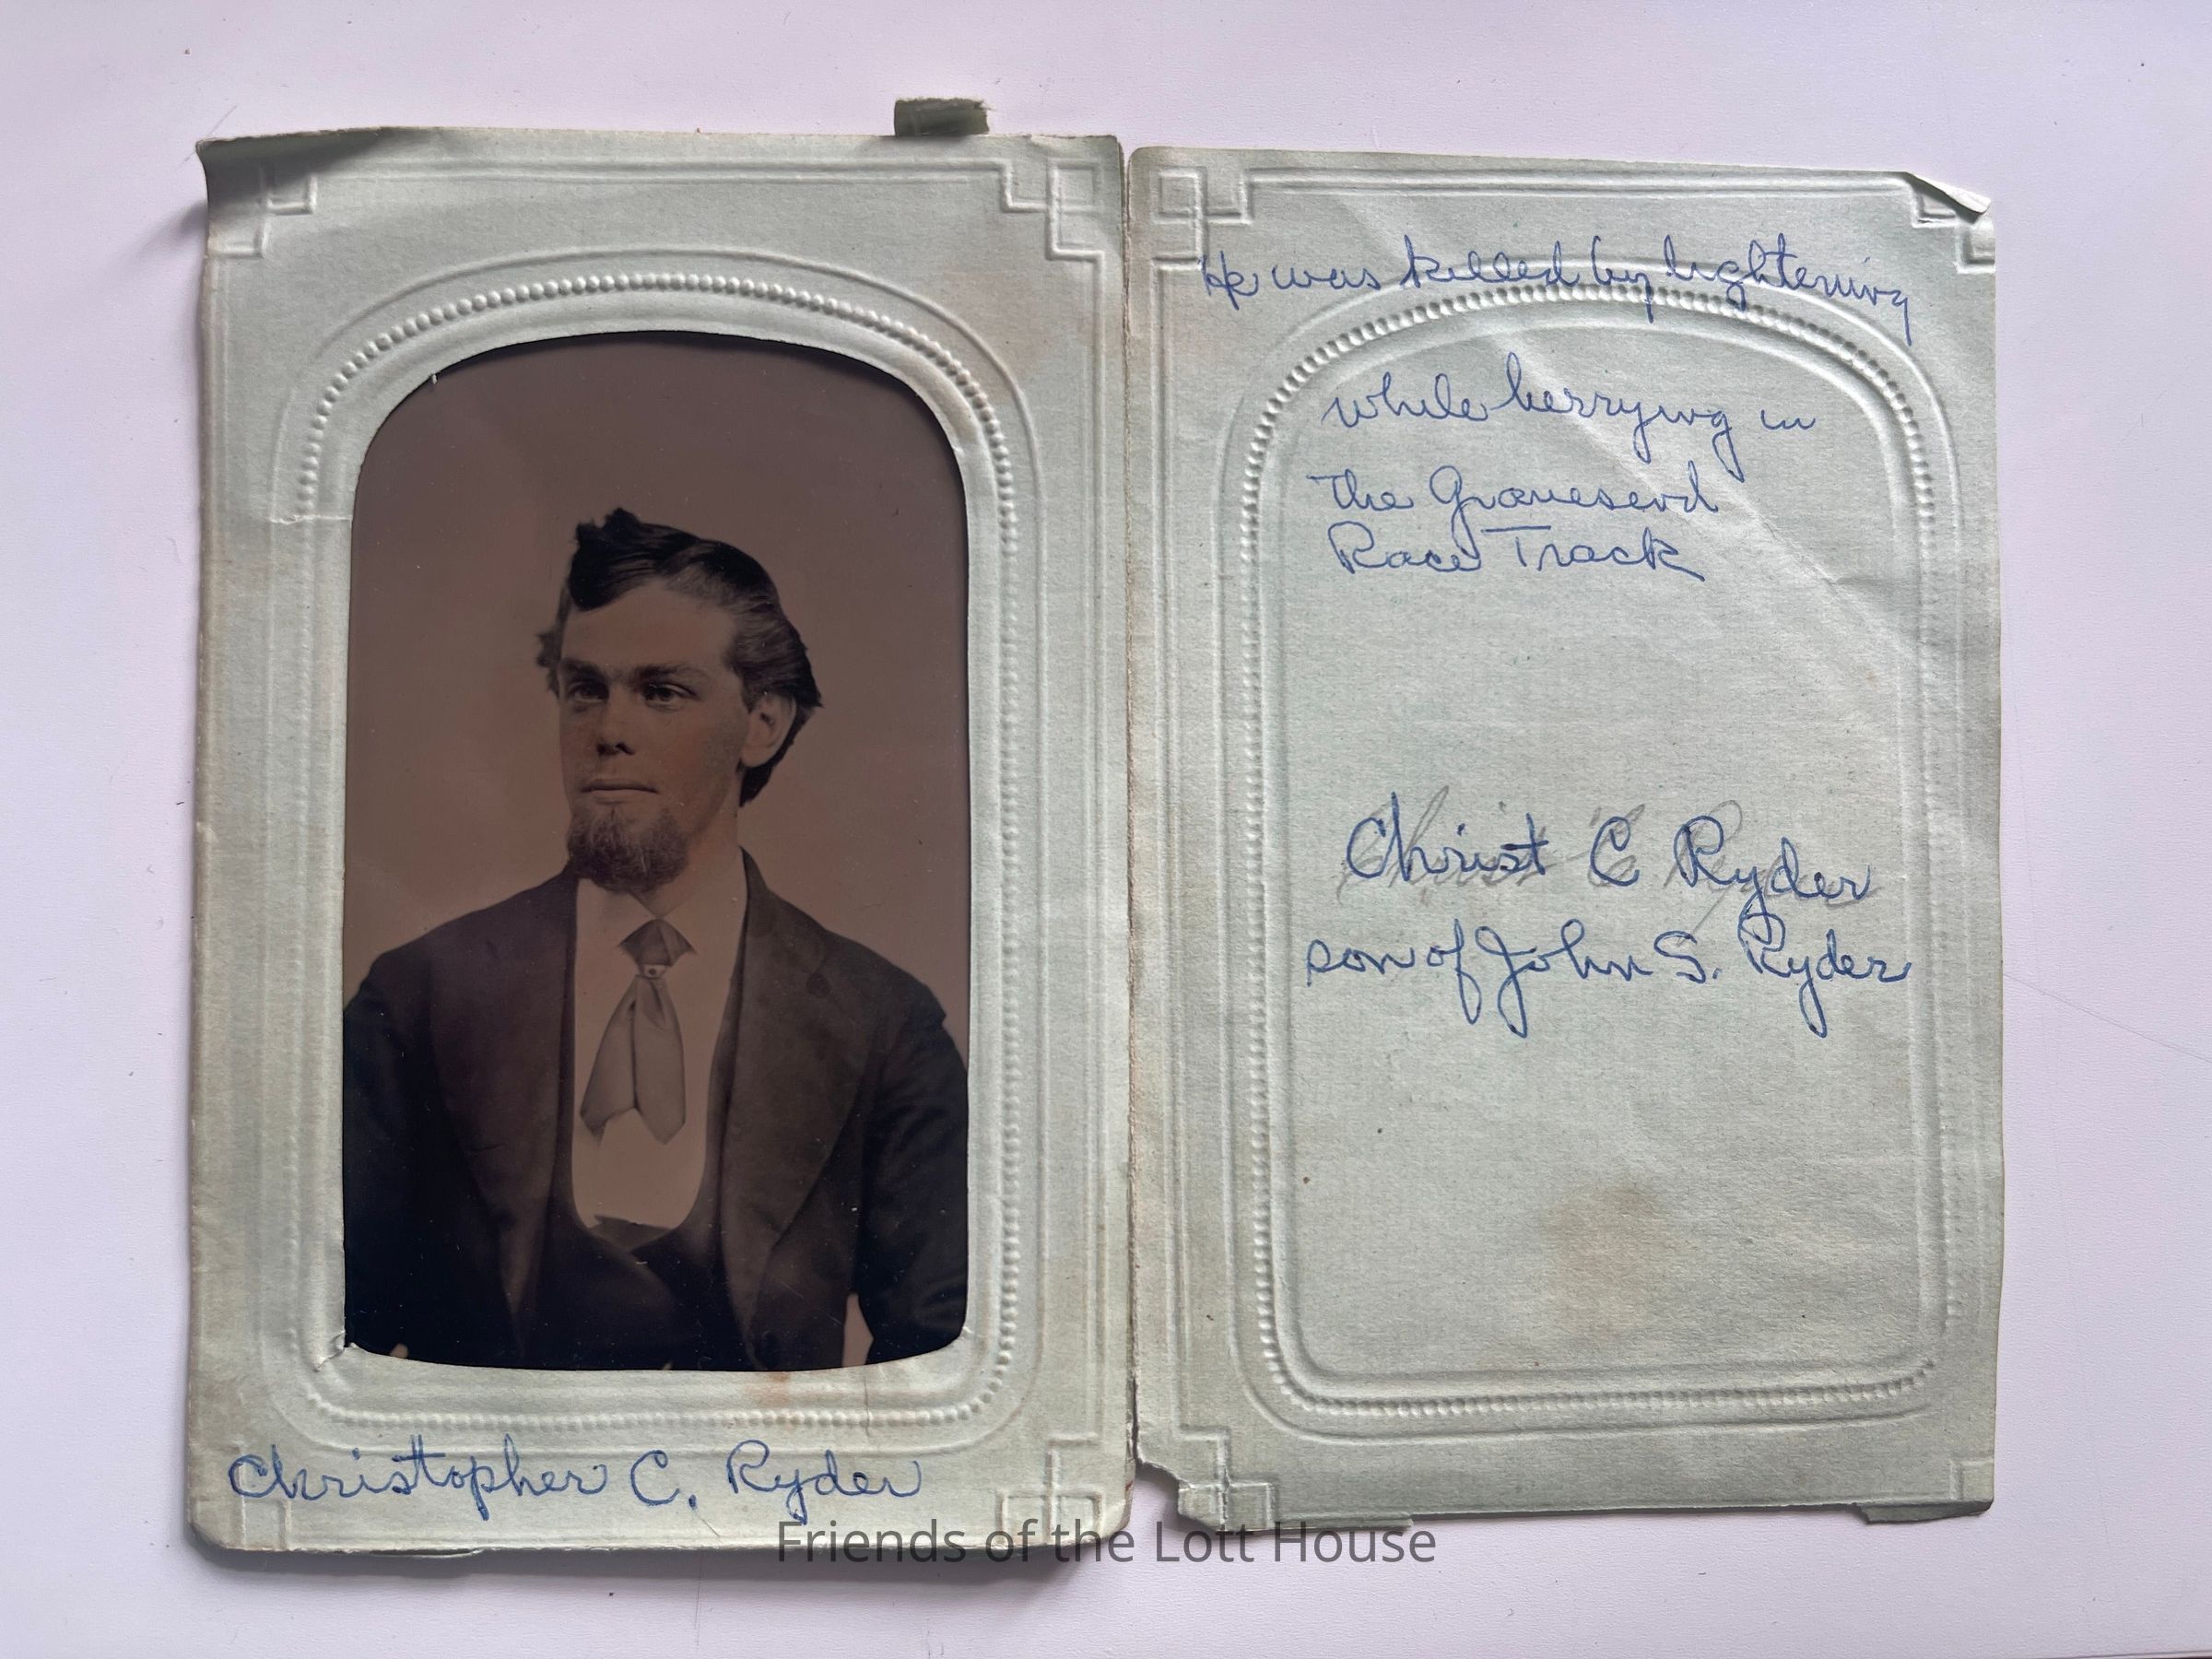 Christopher C. Ryder
He was killed by lightening
while berrying in
the Gravesend
Race Track
Christ C Ryder
son of John S. Ryder
Friends of the Lott House